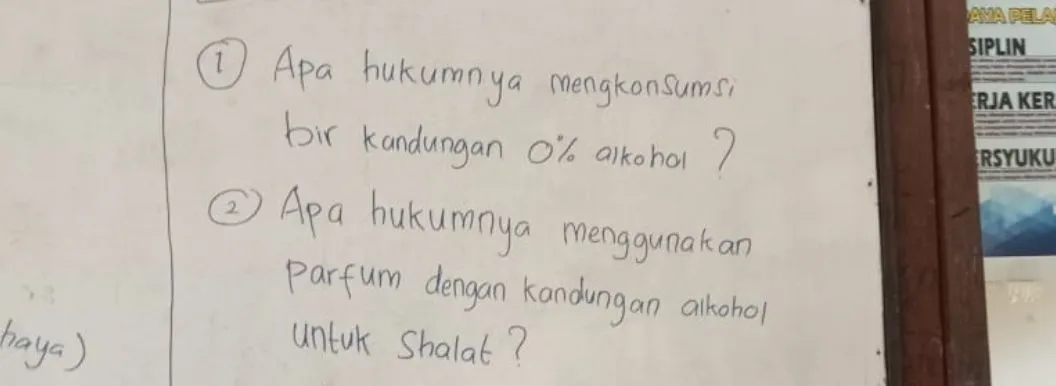 ① Apa hukumnya mengkonsumsi
bir kandungan 0% alkohol ?
② Apa hukumnya menggunakan
parfum dengan kandungan alkohol
untuk Shalat ?
haya)
SIPLIN
ERJA KER
RSYUKU